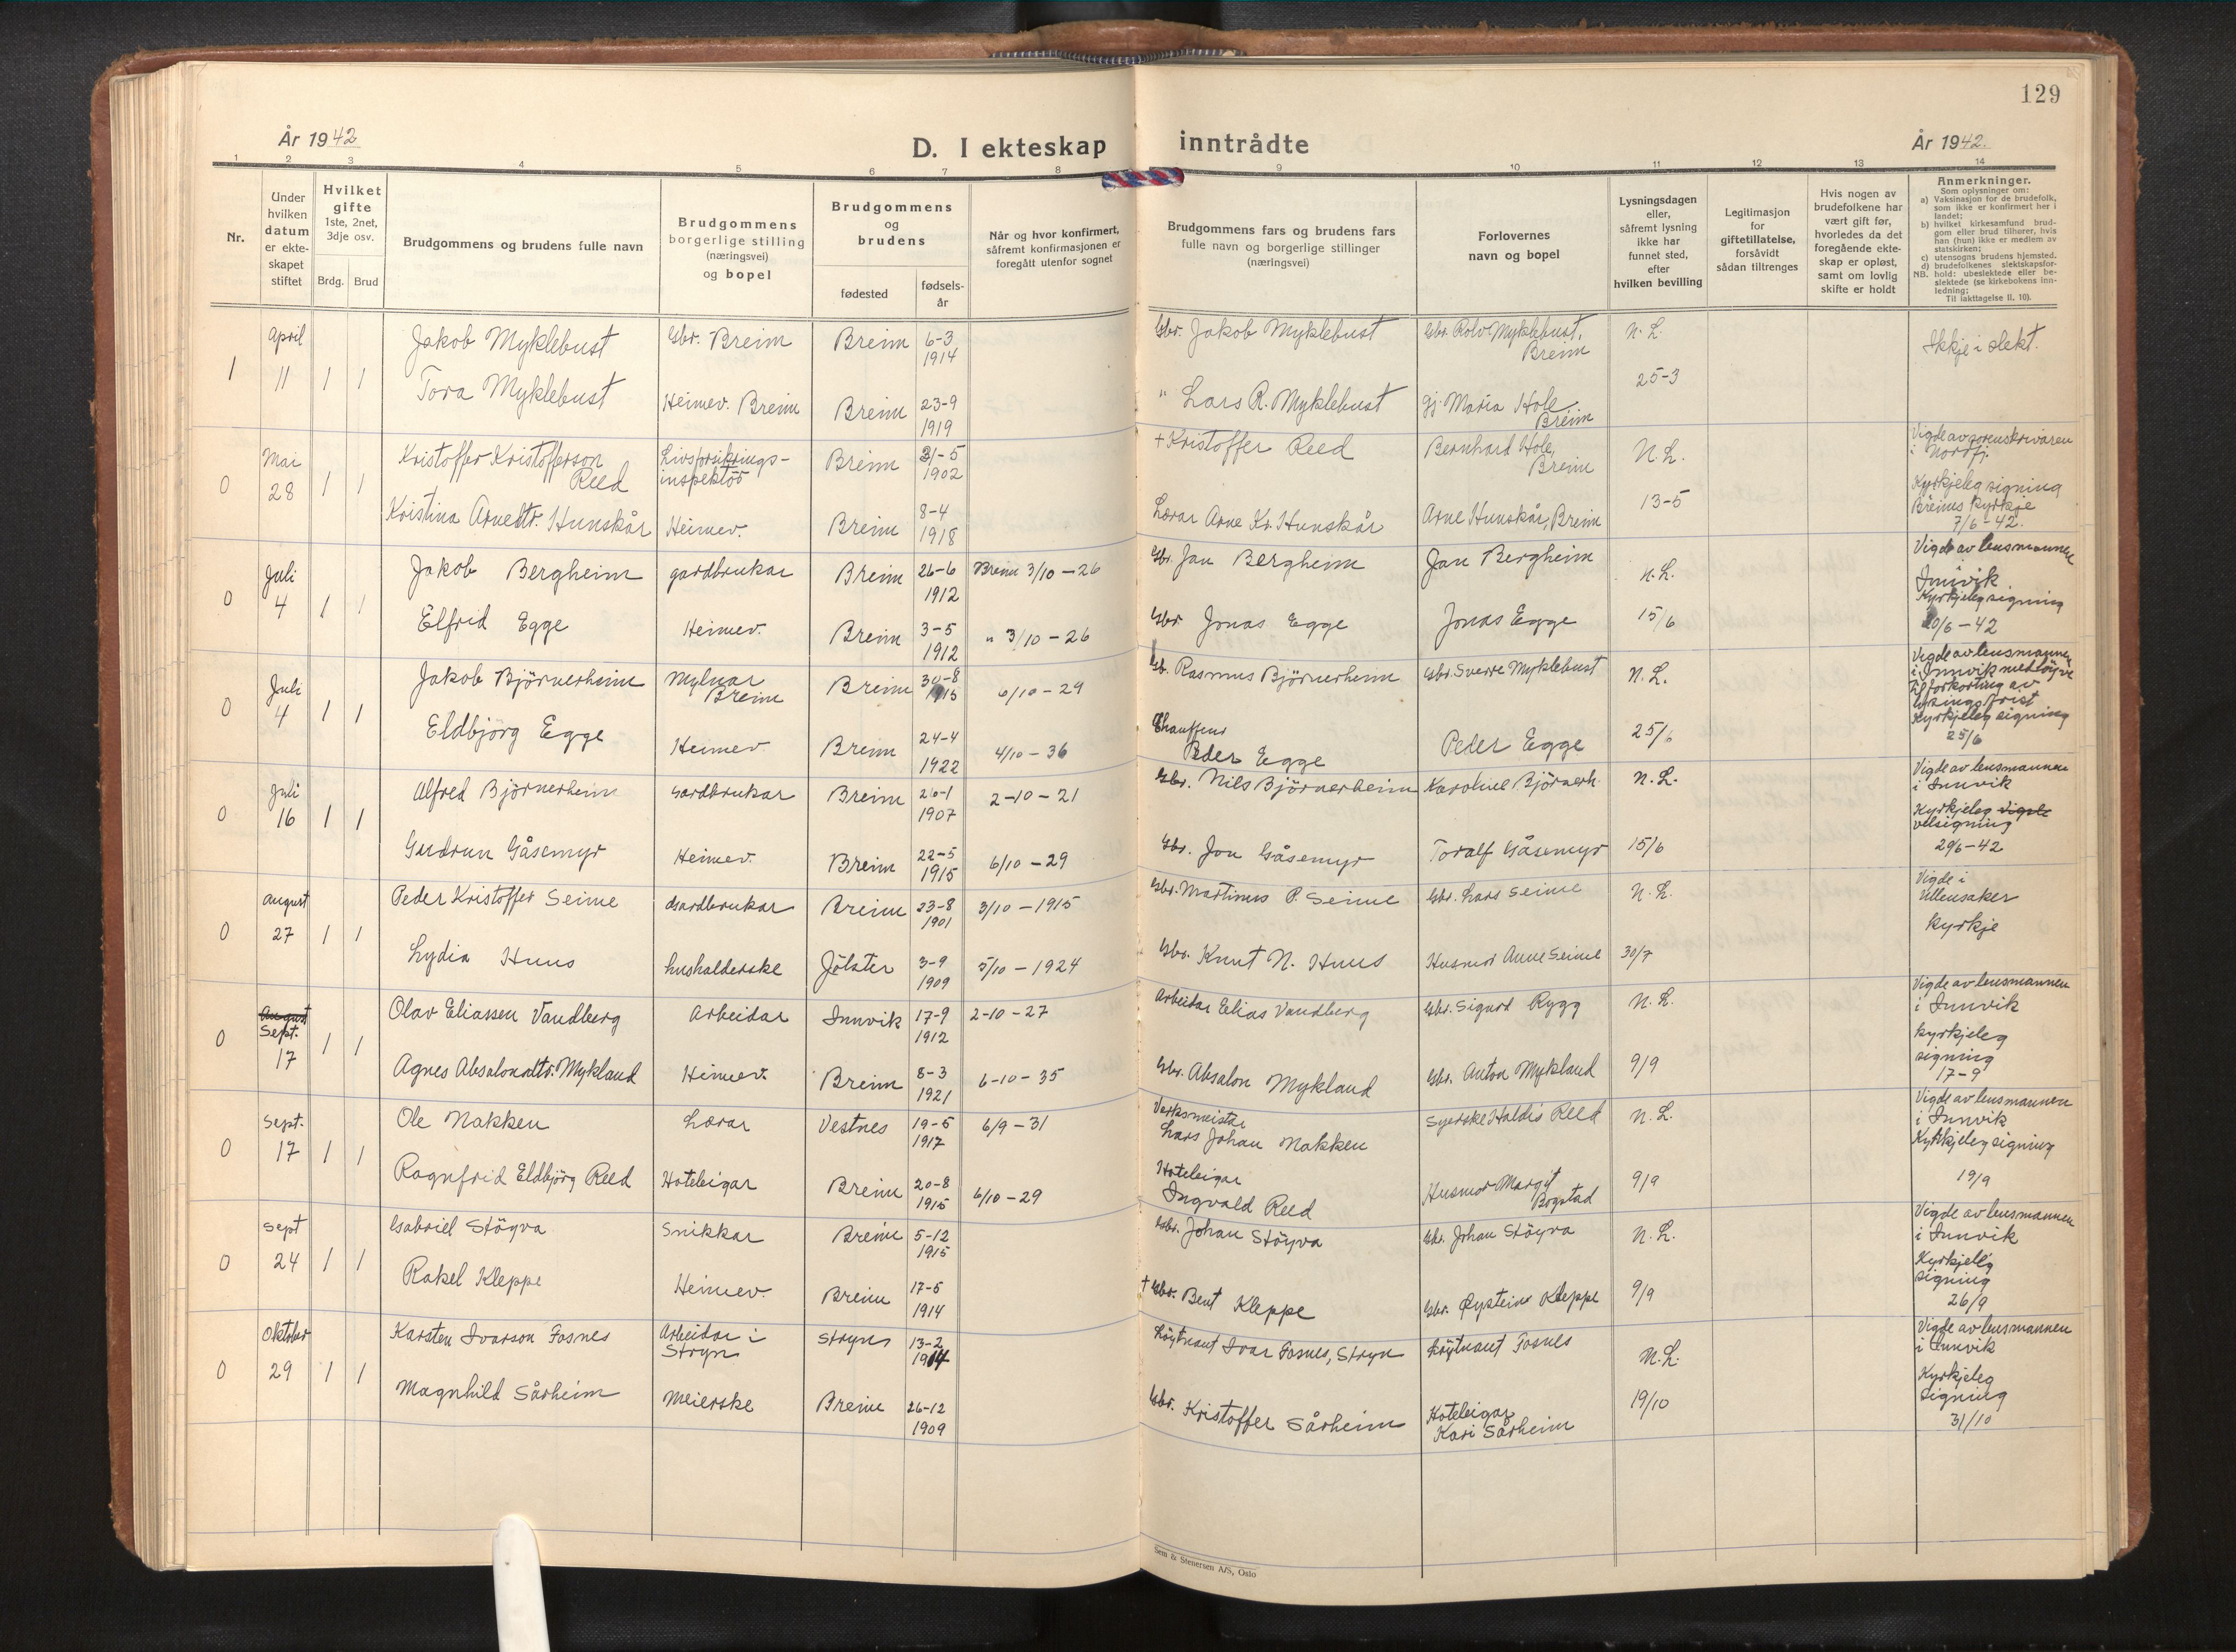 129
År 1942
D. I ekteskap inntrådte
År 1942.
1 2 3 4 5 6 7 8 9 10 11 12 13 14
Nr.
Under
hvilken
datum
er ekte-
skapet
stiftet
Hvilket
gifte
1ste, 2net,
3dje osv.
Brdg. Brud
Brudgommens og brudens fulle navn
Brudgommens
borgerlige stilling
(næringsvei)
og bopel
Brudgommens
og
brudens
fødested
fødsels-
år
Når og hvor konfirmert,
såfremt konfirmasjonen er
foregått utenfor sognet
Brudgommens fars og brudens fars
fulle navn og borgerlige stillinger
(næringsvei)
Forlovernes
navn og bopel
Lysningsdagen
eller,
såfremt lysning
ikke har
funnet sted,
efter
hvilken bevilling
Legitimasjon
for
giftetillatelse,
forsåvidt
sådan tiltrenges
Hvis nogen av
brudefolkene har
vært gift før,
hvorledes da det
foregående ekte-
skap er opløst,
samt om lovlig
skifte er holdt
Anmerkninger.
Som oplysninger om:
a) Vaksinasjon for de brudefolk,
som ikke er konfirmert her i
landet;
b) hvilket kirkesamfund brud-
gom eller brud tilhører, hvis
han (hun) ikke er medlem av
statskirken;
c) utensogns brudens hjemsted.
d) brudefolkenes slektskapsfor-
NB. hold: ubeslektede eller be-
slektede (se kirkebokens inn-
ledning;
Til iakttagelse II. 10).
1 April 11 1 1
Jakob Myklebust Gbr. Breim Breim 6-3 1914
Gbr. Jakob Myklebust Gbr. Rolv Myklebust, Breim N.L. Ikkje i slekt.
Tora Myklebust Heimev. Breim Breim 23-9 1919
" Lars R. Myklebust Gj. Maria Hole Breim 25-3
0 Mai 28 1 1
Kristoffer Kristofferson Reed Livsforsikrings-inspektör Breim 31-5 1902
+ Kristoffer Reed Bernhard Hole, Breim N.L. Vigde av sorenskrivaren i Nordfj.
Kristina Arnedtr. Hunskår Heimev. Breim 8-4 1918
Lærar Arne Kr. Hunskår Arne Hunskår, Breim 13-5 Kyrkjeleg signing Breims kyrkje 7/6-42.
0 Juli 4 1 1
Jakob Bergheim gardbrukar Breim 26-6 1912 Breim 3/10-26
Gbr. Jan Bergheim Jan Bergheim N.L. Vigde av lensmannen Innvik
Elfrid Egge Heimev. Breim 3-5 1912 " 3/10-26
Gbr Jonas Egge Jonas Egge 15/6 Kyrkjeleg signing 20/6-42
0 Juli 4 1 1
Jakob Björnerheim Mylnar Breim Breim 30-8 1915 6/10-29
Gb. Rasmus Björnerheim Gbr. Sverre Myklebust N.L. Vigde av lensmannen i Innvik med löyve til forkorting av lysingsfrist
Eldbjörg Egge Heimev Breim 24-4 1922 4/10-36
Chauffeur Peder Egge Peder Egge 25/6 Kyrkjeleg signing 25/6
0 Juli 16 1 1
Alfred Björnerheim Gardbrukar Breim 26-1 1907 2-10-21
Gbr. Nils Björnerheim Karoline Björnerh. N.L. Vigde av lensmannen i Innvik
Gudrun Gåsemyr Heimev. Breim 22-5 1915 6/10-29
Gbr. Jon Gåsemyr Toralf Gåsemyr 15/6 Kyrkjeleg vigsle velsigning 29/6-42
0 August 27 1 1
Peder Kristoffer Seime Gardbrukar Breim 23-8 1901 3/10-1915
Gbr. Martinus P. Seime Gbr. Lars Seime N.L. Vigde i Ullensaker kyrkje
Lydia Huus husholderske Jölster 3-9 1909 5/10-1924
Gbr. Knut N. Huus Husmor Anne Seime 30/7
0 August Sept. 17 1 1
Olav Eliassen Vandberg Arbeidar Innvik 17-9 1912 2-10-27
Arbeidar Elias Vandberg Gbr. Sigurd Rygg N.L. Vigde av lensmannen i Innvik
Agnes Absalondtr. Mykland Heimev. Breim 8-3 1921 6-10-35
Gbr. Absalon Mykland Gbr. Anton Mykland 9/9 kyrkjeleg signing 17-9
0 Sept. 17 1 1
Ole Nakken Lærar Vestnes 19-5 1917 6/9-31
Verksmeistar Lars Johan Nakken Syerske Haldis Reed N.L. Vigde av lensmannen i Innvik
Ragnfrid Eldbjörg Reed Hoteleigar Breim 20-8 1915 6/10-29
Hoteleigar Ingvald Reed Husmor Margit Bogstad 9/9 Kyrkjeleg signing 19/9
0 Sept 24 1 1
Gabriel Stöyva Snikkar Breim 5-12 1915
Gbr. Johan Stöyva Gbr. Johan Stöyva N.L. Vigde av lensmannen i Innvik
Rakel Kleppe Heimev. Breim 17-5 1914
+ Gbr. Bent Kleppe Gbr. Øystein Kleppe 9/9 Kyrkjeleg signing 26/9
0 Oktober 29 1 1
Karsten Ivarson Fosnes Arbeidar i Stryn Stryn 13-2 1914
Löytnant Ivar Fosnes, Stryn Löytnant Fosnes N.L. Vigde av lensmannen i Innvik
Magnhild Sårheim Meierske Breim 26-12 1909
Gbr. Kristoffer Sårheim Hoteleigar Kari Sårheim 19/10 Kyrkjeleg signing 31/10
Sem & Stenersen A/S, Oslo